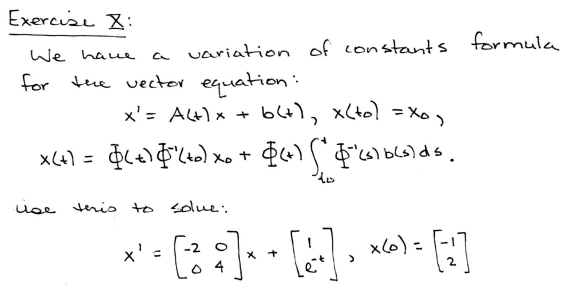 Exercise X:
We have a variation of constants formula
for the vector equation:
x' = A(t)x + b(t), x(t₀) = x₀,
x(t) = Φ(t)Φ⁻¹(t₀)x₀ + Φ(t)∫_{t₀}^{t} Φ⁻¹(s)b(s)ds.
Use this to solve:
x' = [-2 0; 0 4] x + [1; e^{-t}], x(0) = [-1; 2]